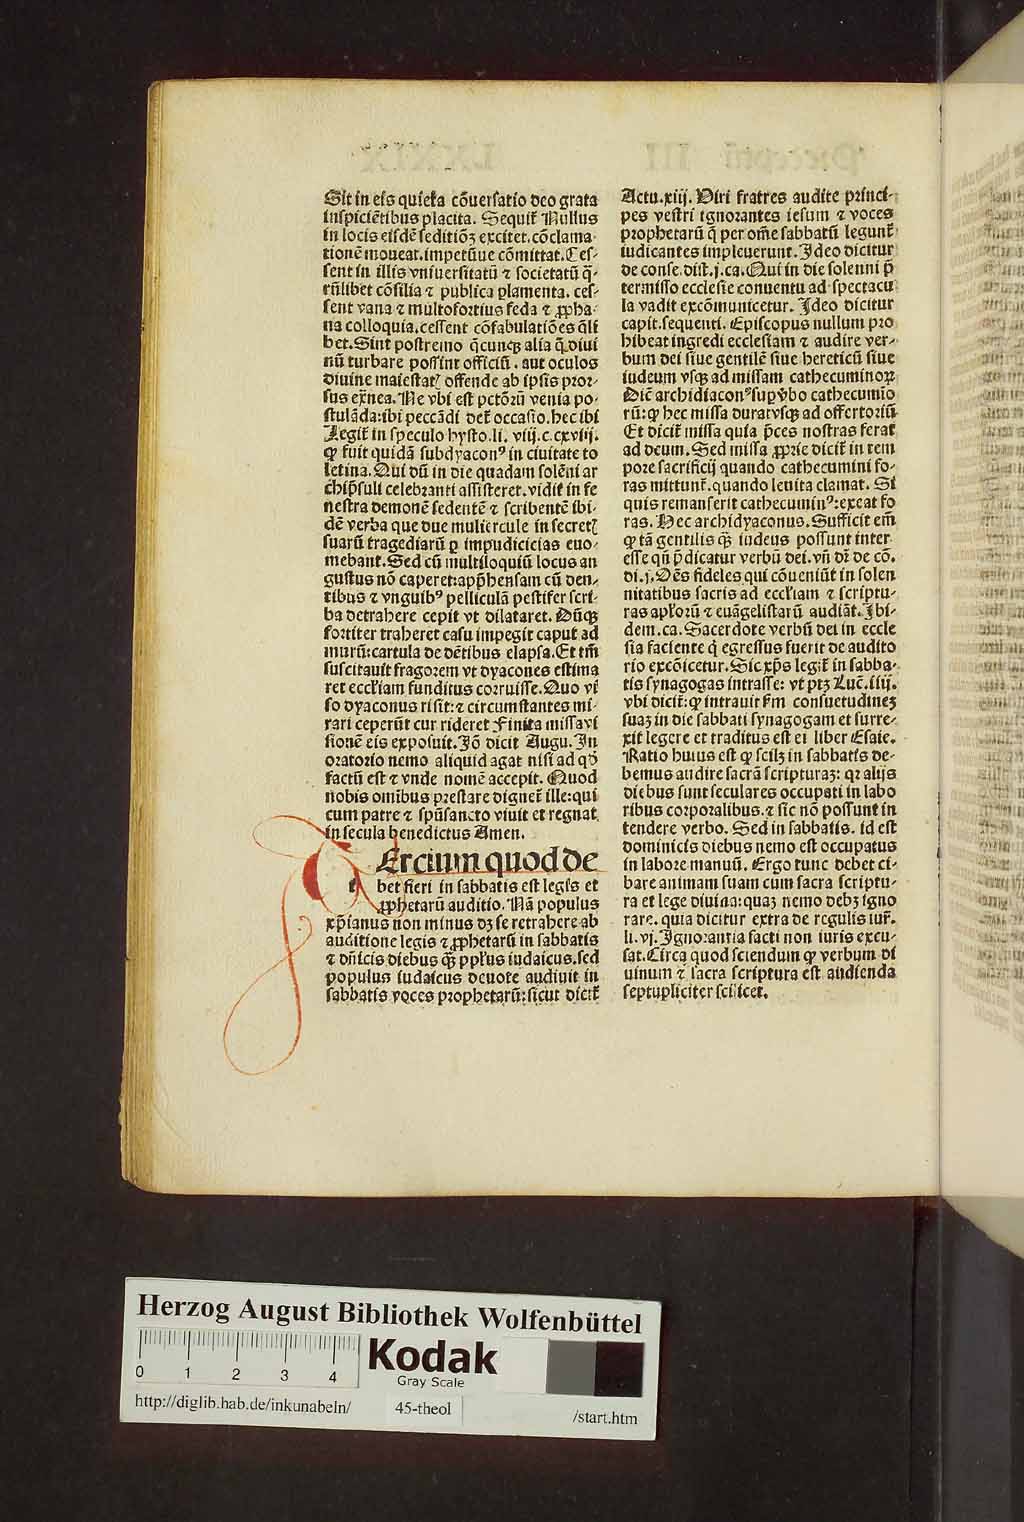 Sit in eis quieta cōuersatio deo grata
inspiciētibus placita. Sequit̄ Nullus
in locis eisdē seditiōꝫ excitet. cōclama-
tionē moueat. impetūue cōmittat. Ces-
sent in illis vniuersitatū ⁊ societatū q̄-
rūlibet cōsilia ⁊ publica ꝑlamenta. ces-
sent vana ⁊ multofortius feda ⁊ ꝓpha-
na colloquia. cessent cōfabulatiōes q̄li
bet. Sint postremo q̄cunqꝫ alia q̄ diui
nū turbare possint officiū. aut oculos
diuine maiestatꝭ offende ab ipsis pror-
sus ex̄nea. Ne vbi est pctōrū venia po-
stulāda: ibi peccādi det̄ occasio. hec ibi
Legit̄ in speculo hysto. li. viij. c. cxviij.
ꝙ fuit quidā subdyaconꝰ in ciuitate to
letina. Qui dū in die quadam solēni ar
chip̄suli celebranti assisteret. vidit in fe
nestra demonē sedentē ⁊ scribentē ibi-
dē verba que due muliercule in secretꝭ
suarū tragediarū ꝑ impudicicias euo-
mebant. Sed cū multiloquiū locus an
gustus nō caperet: app̄hensam cū den-
tibus ⁊ vnguibꝰ pelliculā pestifer scri-
ba detrahere cepit vt dilataret. Dūqꝫ
fortiter traheret casu impegit caput ad
murū: cartula de dētibus elapsa. Et tm̄
suscitauit fragorem vt dyacones estima
ret eccl̄iam funditus corruisse. Quo vi
so dyaconus risit: ⁊ circumstantes mi-
rari ceperūt cur rideret Finita missa vi
sionē eis exposuit. Jō dicit Augu. In
oratorio nemo aliquid agat nisi ad qd̄
factū est ⁊ vnde nomē accepit. Quod
nobis omībus prestare dignet̄ ille: qui
cum patre ⁊ spū sancto viuit et regnat
in secula benedictus Amen.
t Ercium quod de
bet fieri in sabbatis est legis et
ꝓphetarū auditio. Nā populus
xp̄ianus non minus dꝫ se retrahere ab
auditione legis ⁊ ꝓphetarū in sabbatis
⁊ dn̄icis diebus qꝫ ppl̄us iudaicus. sed
populus iudaicus deuote audiuit in
sabbatis voces prophetarū: sicut dicit̄
Actu. xiij. Viri fratres audite princi-
pes vestri ignorantes iesum ⁊ voces
prophetarū q̄ per om̄e sabbatū legunt̄
iudicantes impleuerunt. Ideo dicitur
de conse. dist. j. ca. Qui in die solenni p̄
termisso ecclesie conuentu ad spectacu
la vadit excōmunicetur. Ideo dicitur
capit. sequenti. Episcopus nullum pro
hibeat ingredi ecclesiam ⁊ audire ver-
bum dei siue gentilē siue hereticū siue
iudeum vsqꝫ ad missam cathecuminoꝝ
Dic̄ archidiaconꝰ sup v̄bo cathecumīo
rū: ꝙ hec missa durat vsqꝫ ad offertoriū
Et dicit̄ missa quia p̄ces nostras ferat
ad deum. Sed missa ꝓprie dicit̄ in rem
pore sacrificij quando cathecumini fo-
ras mittunt̄. quando leuita clamat. Si
quis remanserit cathecuminꝰ: exeat fo
ras. Hec archidyaconus. Sufficit em̄
ꝙ tā gentilis qꝫ iudeus possunt inter
esse qn̄ p̄dicatur verbū dei. vn̄ dr̄ de cō.
di. j. Oēs fideles qui cōueniūt in solen
nitatibus sacris ad eccl̄iam ⁊ scriptu-
ras apl̄orū ⁊ euāgelistarū audiāt. Ibi-
dem. ca. Sacerdote verbū dei in eccle
sia faciente q̄ egressus fuerit de audito
rio excōicetur. Sic xp̄s legit̄ in sabba-
tis synagogas intrasse: vt ptꝫ Luc̄. iiij.
vbi dicit̄: ꝙ intrauit s̄m consuetudineꝫ
suaꝫ in die sabbati synagogam et surre-
xit legere et traditus est ei liber Esaie.
Ratio huius est ꝙ scilꝫ in sabbatis de-
bemus audire sacrā scripturaꝫ: qꝛ alijs
diebus sunt seculares occupati in labo
ribus corporalibus. ⁊ sic nō possunt in
tendere verbo. Sed in sabbatis. id est
dominicis diebus nemo est occupatus
in labore manuū. Ergo tunc debet ci-
bare animam suam cum sacra scriptu-
ra et lege diuina: quaꝫ nemo debꝫ igno
rare. quia dicitur extra de regulis iur̄.
li. vj. Ignorantia facti non iuris excu-
sat. Circa quod sciendum ꝙ verbum di
uinum ⁊ sacra scriptura est audienda
septupliciter scilicet.
Herzog August Bibliothek Wolfenbüttel
0 1 2 3 4
Kodak
Gray Scale
http://diglib.hab.de/inkunabeln/
45-theol
/start.htm